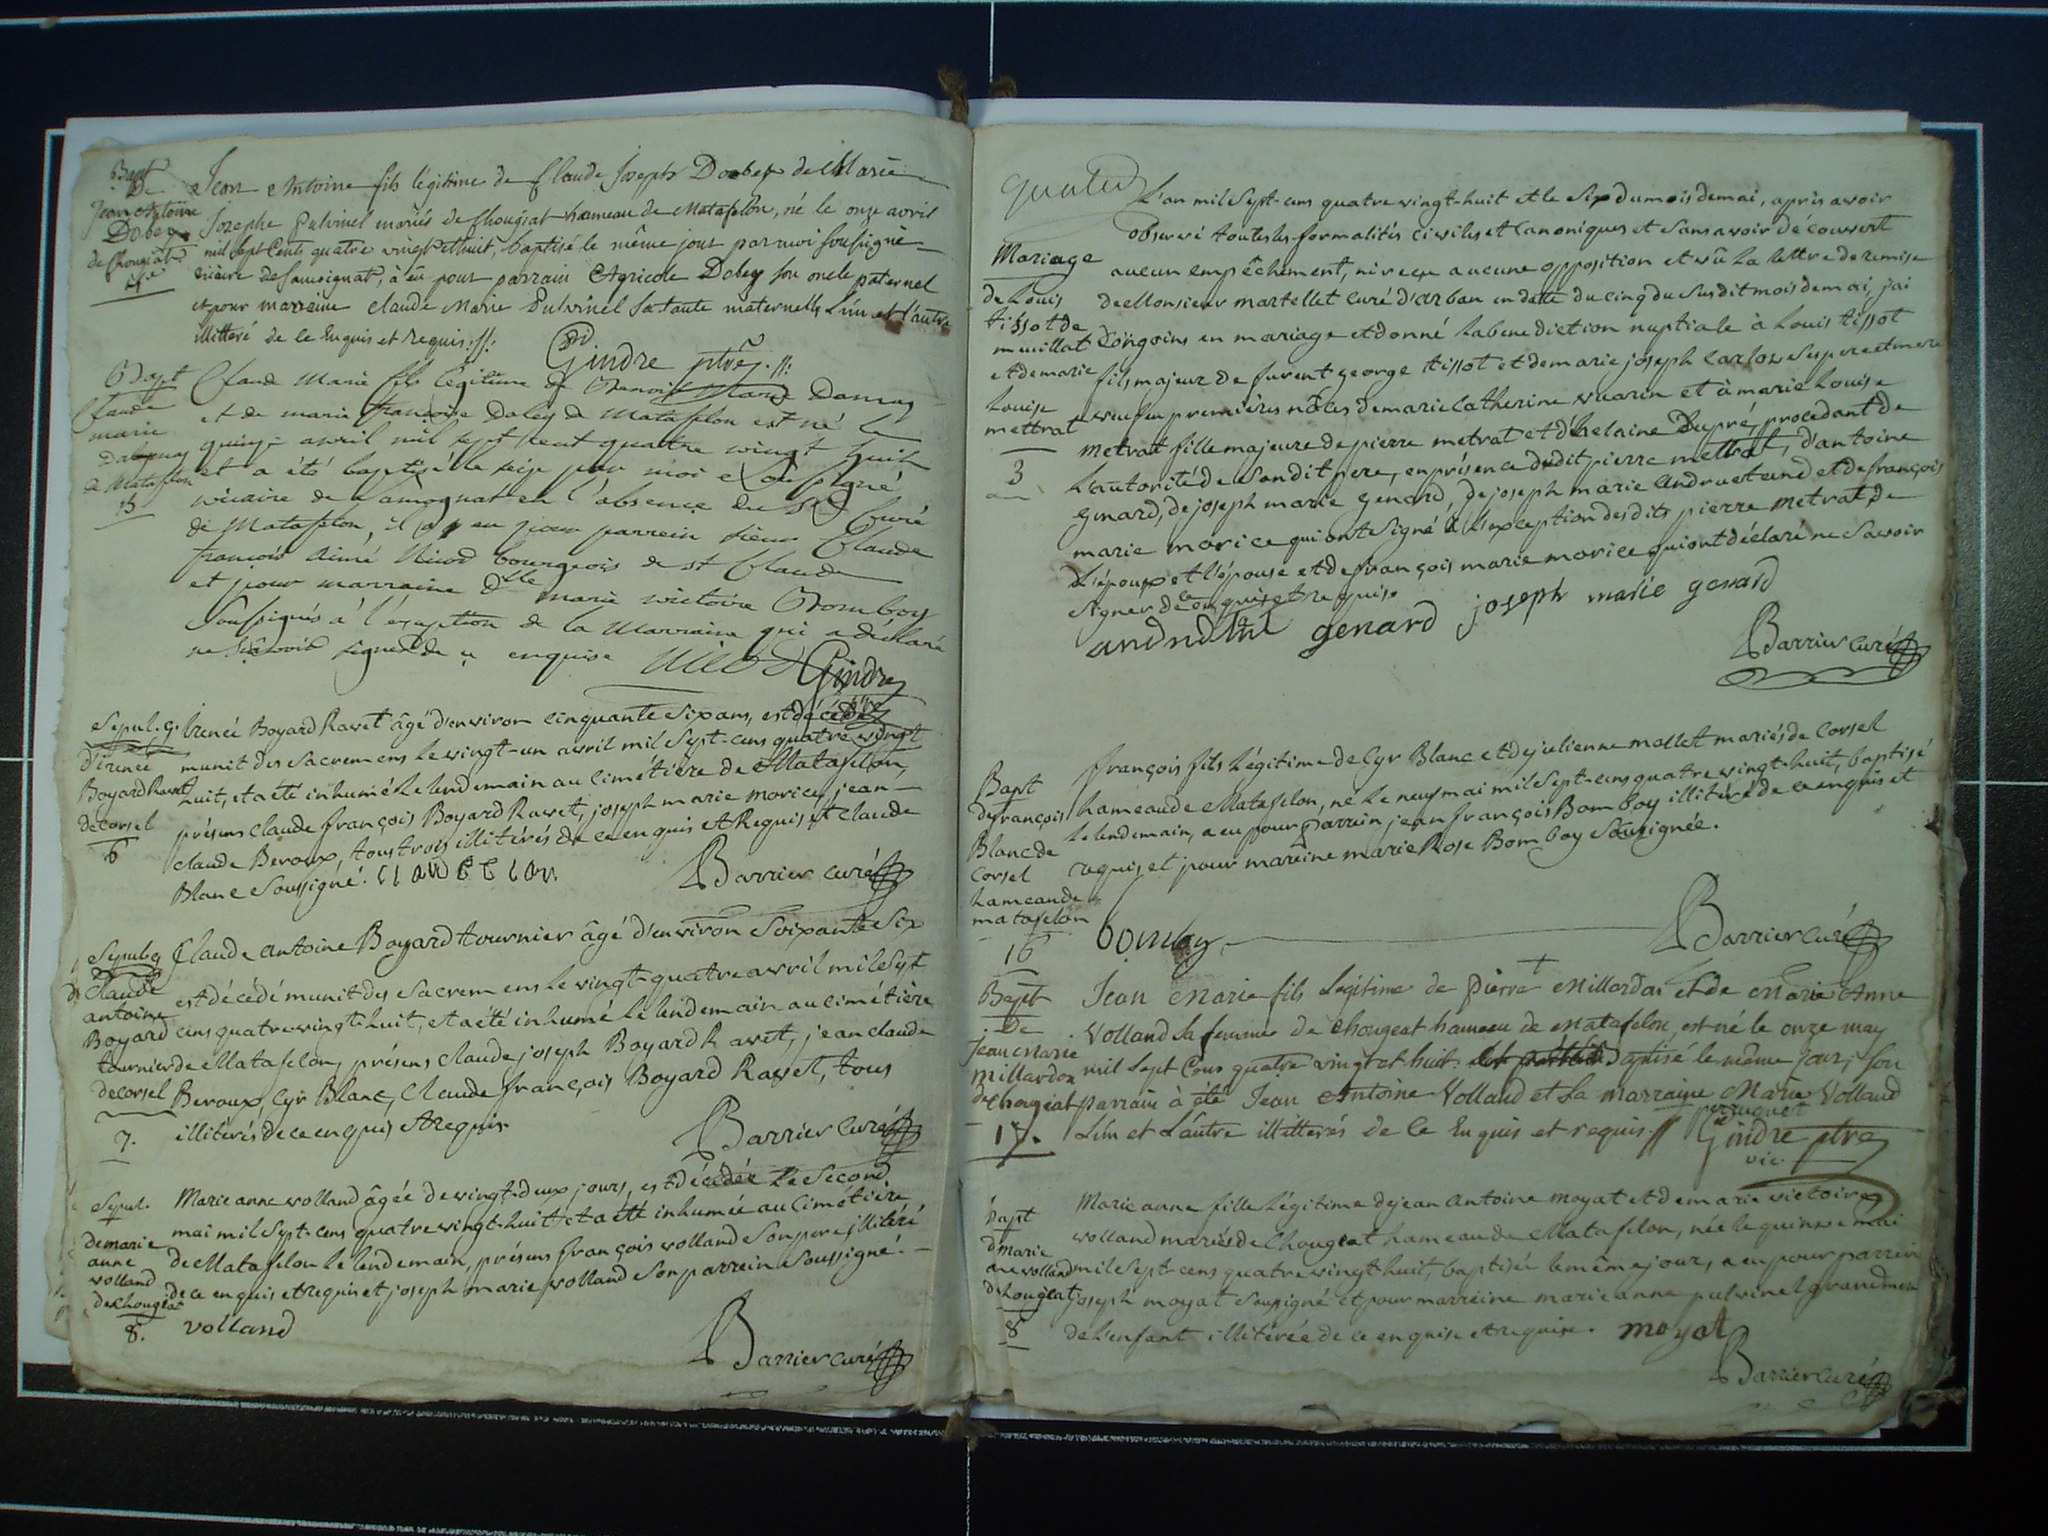 Bapt
De
Jean Antoine
Dobey
de Chougeat
Jean Antoine fils légitime de Claude Joseph Dobey de Marie
Josephe Pulvinel mariés de Chougeat hameau de Matafelon, né le onze avril
mil sept Cents quatre vingt et huit, baptisé le même jour par moi soussigné
vicaire de Samoignat, à eu pour parrain Agricole Dobey son oncle paternel
et pour marraine Claude Marie Pulvinel sa tante maternelle L'un et l'autre
illitteré de ce Enquis et Requis.//.
Gindre ptre
Bapt
Claude
marie
Damey
de Matafelon
15
Claude Marie fils légitime de Benoit Damey
et de marie françoise Dalez de Matafelon est né le
quinze avril mil sept cent quatre vingt huit
et a été baptisé le seize par moi soussigné
vicaire de Samognat en l'absence du Sr Curé
de Matafelon, il a eu pour parrein sieur Claude
françois Aimé Nicod bourgeois de st Claude
et pour marraine Dlle marie victoire Bomboy
Soussignés à l'exception de la Marraine qui a déclaré
ne sçavoir signer de ce enquise Nicod Gindre
Sepul.
d'irenée
Boyard Ravet
de Corsel
6
irenée Boyard Ravet âgé d'environ cinquante six ans, est décédé
munit des sacremens le vingt-un avril mil sept-cens quatre vingt
huit, et a été inhumé le lendemain au cimétière de Matafelon,
présens claude françois Boyard Ravet, joseph marie morice, jean
claude Beroux, tous trois illitérés de ce enquis et Requis, et claude
Blanc soussigné. Barrier curé
Sepul.
de
Claude
antoine
Boyard
tournier
de Corsel
7.
Claude antoine Boyard tournier âgé d'environ soixante six
est décédé munit des sacremens le vingt-quatre avril mil sept
cens quatre vingt-huit, et a été inhumé le lendemain au cimétière
de Matafelon, présens claude joseph Boyard Ravet, jean claude
Beroux, Cyr Blanc, Claude françois Boyard Ravet, tous
illitérés de ce enquis et requis.
Barrier curé
Sepul.
de marie
anne
volland
de Chougeat
8.
Marie anne volland âgée de vingt-deux jours, est décédée le second
mai mil sept-cens quatre vingt-huit et a été inhumée au cimétière
de Matafelon le lendemain, présens françois volland son pere illitéré
de ce enquis et requis et joseph marie volland son parrein soussigné.
volland
Barrier curé
Mariage
de Louis
tissot de
et de marie
Louise
mettrat
3
L'an mil sept-cens quatre vingt-huit et le six du mois de mai, après avoir
observé toutes les formalités civiles et canoniques et sans avoir découvert
aucun empêchement, ni reçu aucune opposition et vû la lettre de remise
de Monsieur martellet curé d'arban en datte du cinq du susdit mois de mai, j'ai
conjoins en mariage et donné la benediction nuptiale à Louis tissot
fils majeur de furent george tissot et de marie joseph carlos ses pere et mere
veuf en premières nôces de marie catherine vuarin et à marie Louise
metrat fille majeure de pierre metrat et d'helaine Dupré, procedant de
l'autorité de sondit pere, en présence dudit pierre mettrat, d'antoine
genard, de joseph marie genard, de joseph marie andru et de françois
marie morice qui ont signé à l'exception desdits pierre metrat, de
l'époux et l'épouse et de françois marie morice qui ont déclaré ne savoir
signer de ce enquis et requis.
genard joseph marie genard
Barrier curé
Bapt
de françois
Blanc de
Corsel
hameau de
matafelon
16
françois fils légitime de Cyr Blanc et de julienne mollet mariés de Corsel
hameau de Matafelon, né le neuf mai mil sept-cens quatre vingt-huit, baptisé
le lendemain, a eu pour parrein jean françois Bomboy illitéré de ce enquis et
requis, et pour mareine marie Rose Bomboy soussignée.
bomboy
Barrier curé
Bapt
De
Jean Marie
Millardon
de Chougeat
17.
Jean Marie fils Légitime de Pierre Millardon et de Marie Anne
Volland sa femme de Chougeat hameau de Matafelon, est né le onze may
mil sept Cens quatre vingt et huit baptisé le même jour, son
parrain à été Jean Antoine Volland et La marraine Marie Volland
L'un et L'autre illitterés de Ce Enquis et requis.// Gindre ptre
vic.
bapt
de marie
anne volland
de Chougeat
8
Marie anne fille légitime de jean antoine moyat et de marie victoire
volland mariés de Chougeat hameau de Matafelon, née le quinze mai
mil sept-cens quatre vingt-huit, baptisée le même jour, a eu pour parrein
joseph moyat soussigné et pour marreine marie anne pulvinel grand mere
de l'enfant illitérée de ce enquise et requise. moyat
Barrier curé